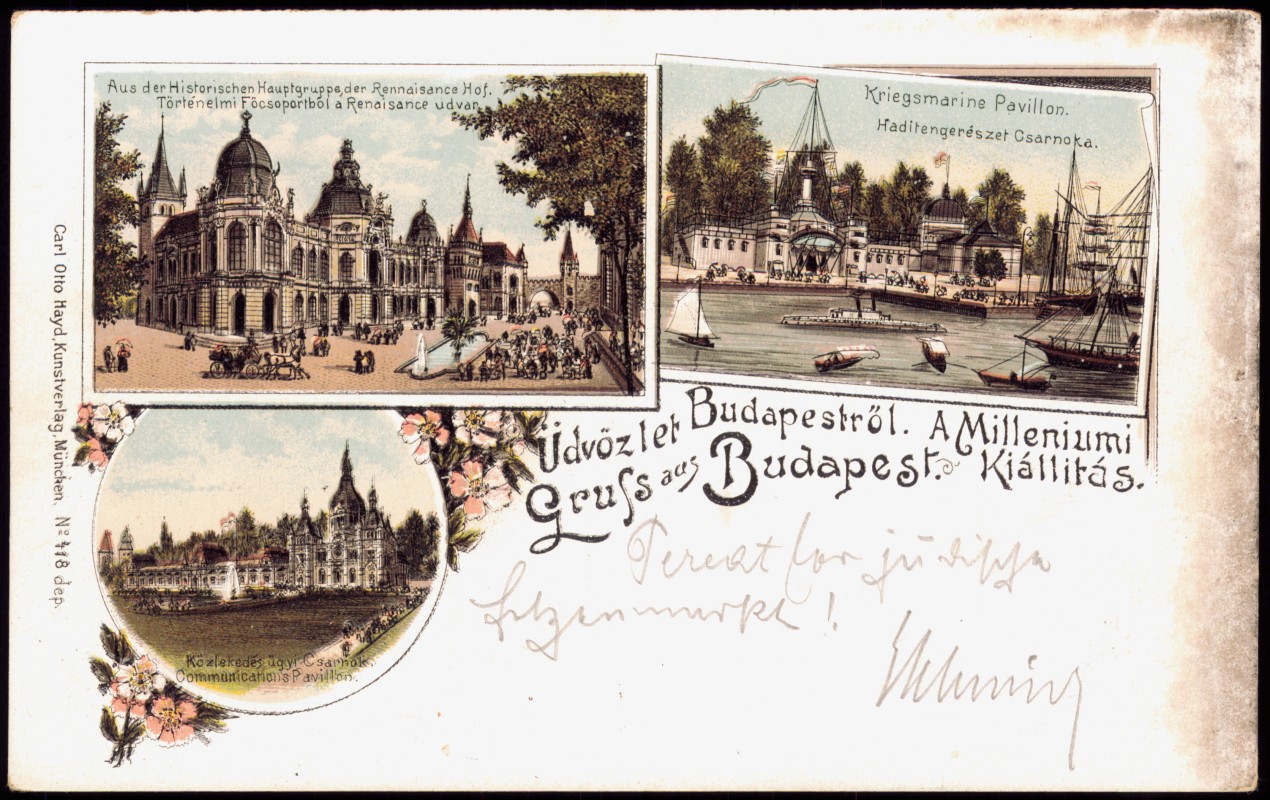 Aus der Historischen Hauptgruppe, der Rennaisance Hof.
Történelmi Föcsoportból a Renaisance udvar.
Kriegsmarine Pavillon.
Haditengerészet Csarnoka.
Üdvözlet Budapestről.
Gruſs aus Budapest.
A Milleniumi
Kiállitás.
Közlekedés ügyi Csarnok.
Communications Pavillon.
Carl Otto Hayd, Kunstverlag, München. No 418 dep.
Pereat der jüdische
Fetzenmarkt!